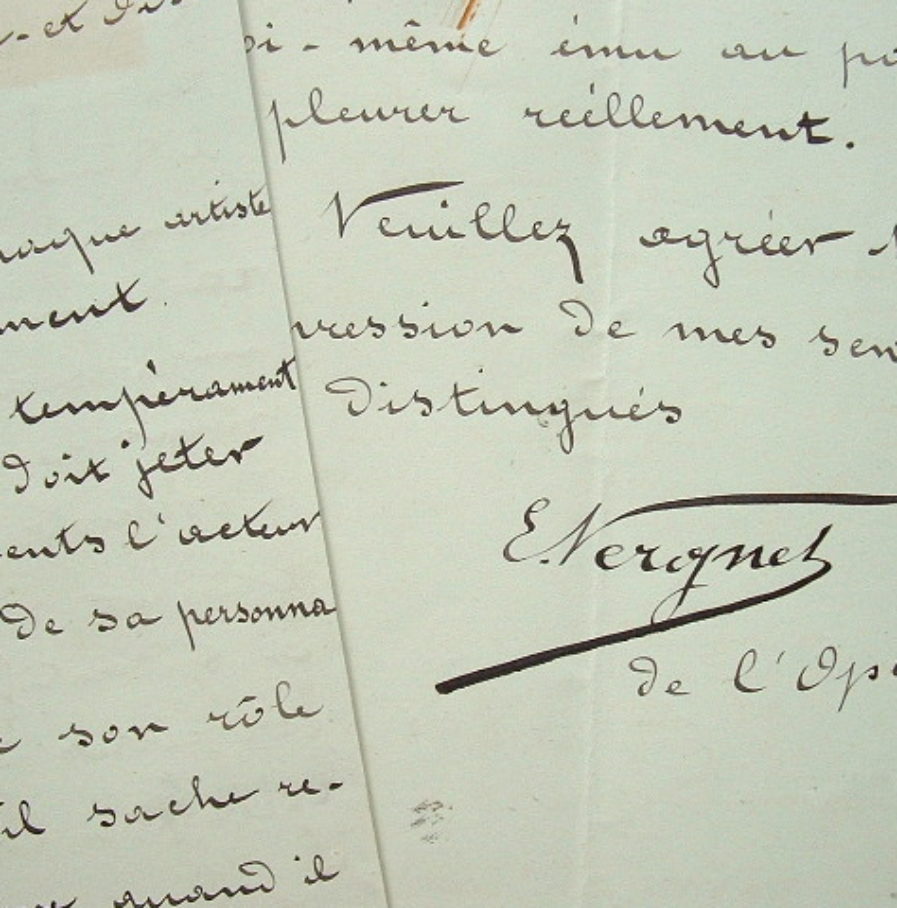 et
haque artiste
ment.
tempérament
doit jeter
ents l'acteur
de sa personna
son rôle
il sache re-
quand il
oi-même ému au po
pleurer réellement.
Veuillez agréer l
pression de mes sen
distingués
E. Vergnet
de l'Opé